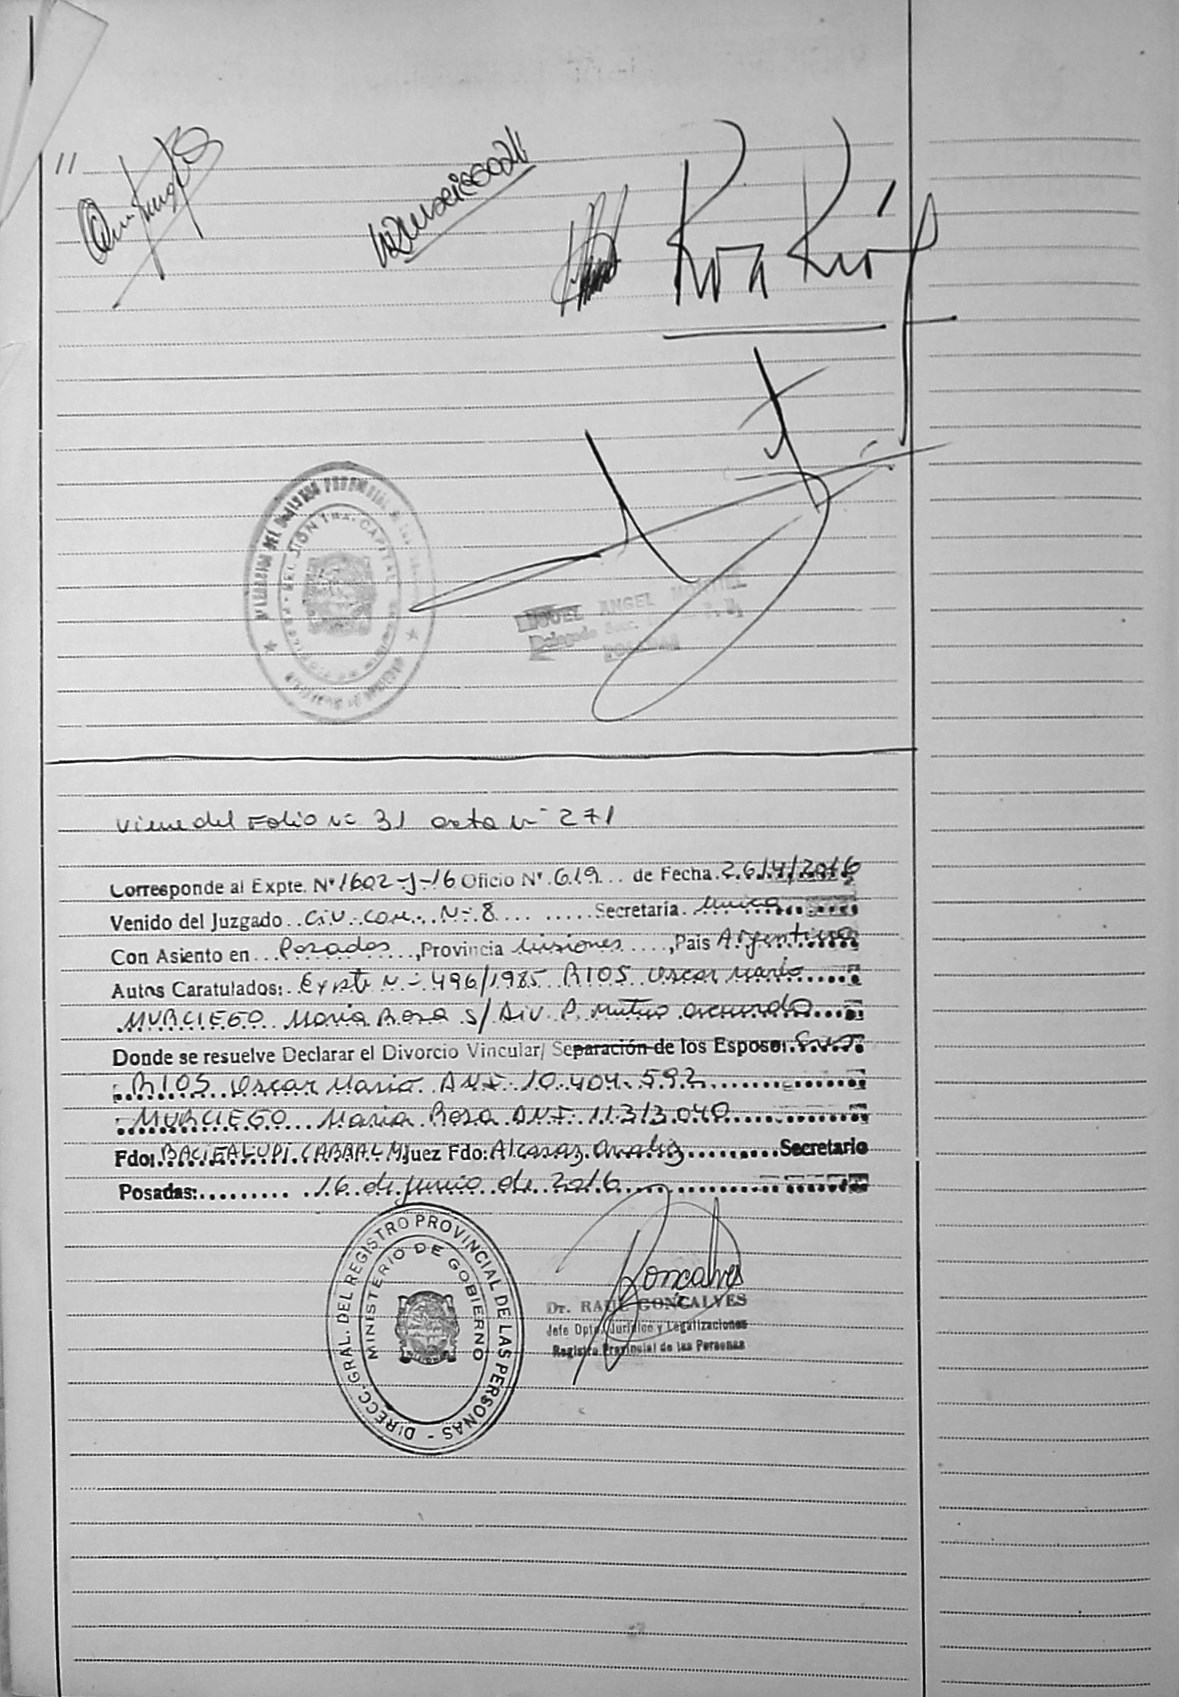 "
Roa Rios
MIGUEL ANGEL MONTIEL
Delegado
POSADAS
Viene del Folio Nº 31 acta Nº 271
Corresponde al Expte. Nº 1602-J-16 Oficio Nº 619 de Fecha 26/4/2016
Venido del Juzgado Civ. Com. Nº 8 Secretaría Unica
Con Asiento en Posadas, Provincia Misiones, País Argentina
Autos Caratulados: Expte Nº 496/1985 RIOS Oscar Mario
MURCIEGO Maria Rosa s/ Div. P. Mutuo acuerdo
Donde se resuelve Declarar el Divorcio Vincular/ Separación de los Esposos:
RIOS Oscar Mario D.N.I. 10.404.592
MURCIEGO Maria Rosa DNI 11313.040
Fdo: BACIGALUPI CABRAL M Juez Fdo: Alcaraz Secretario
Posadas: 16 de junio de 2016
DIRECC. GRAL. DEL REGISTRO PROVINCIAL DE LAS PERSONAS -
MINISTERIO DE GOBIERNO
Goncalves
Dr. RAUL GONÇALVES
Jefe Dpto. Jurídico y Legalizaciones
Registro Provincial de las Personas